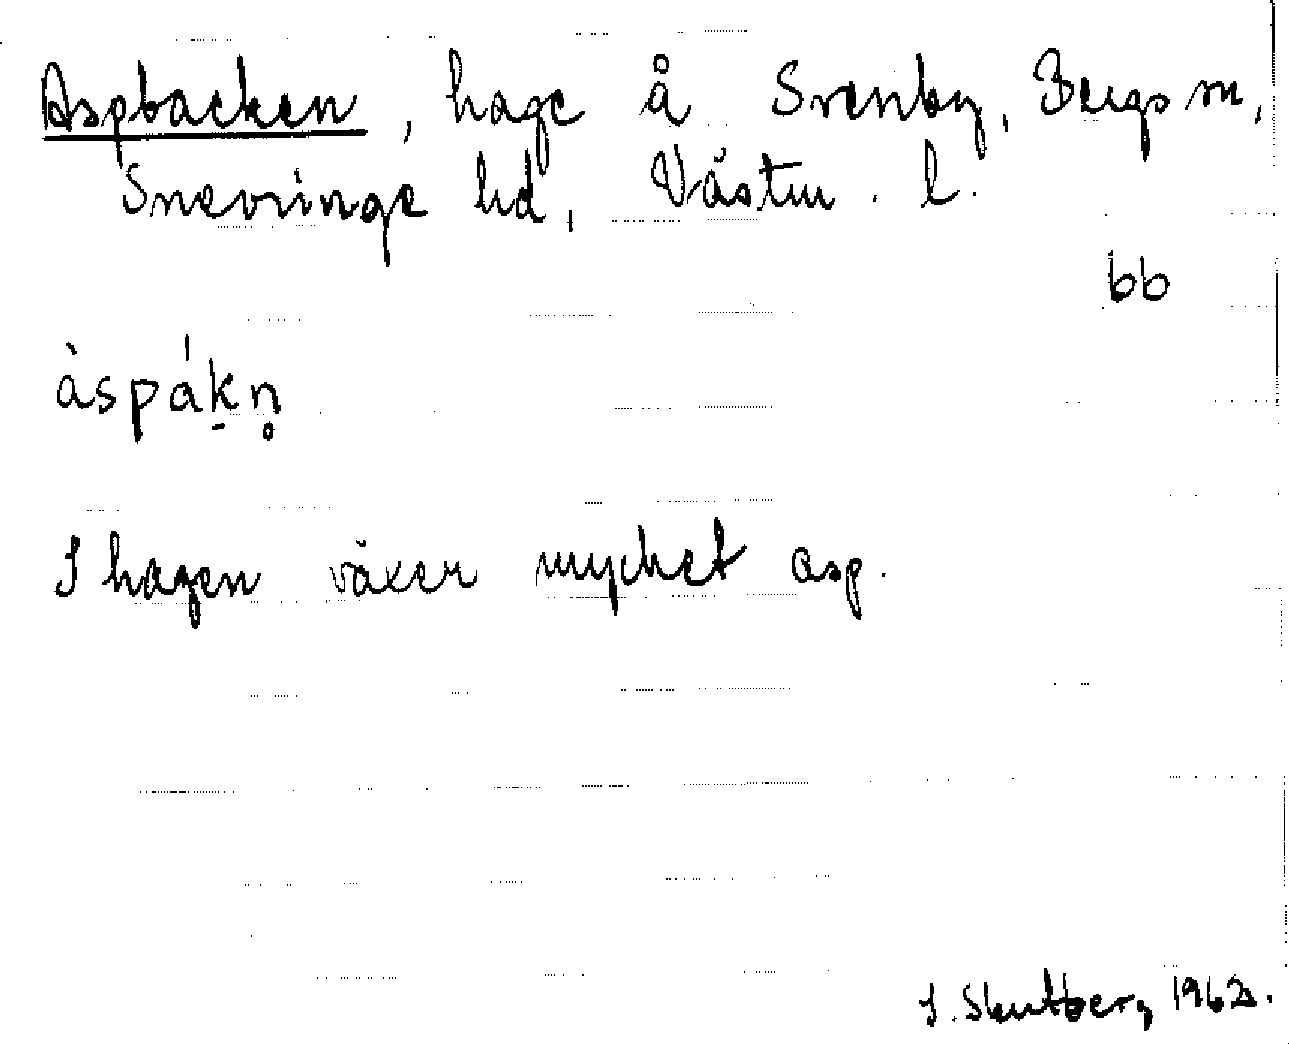 Aspbacken, hage å Svenby, Bergs sn,
Snevringe hd, Västm. l.
bb
àspákn̥
I hagen växer mycket asp.
I. Skutberg 1962.